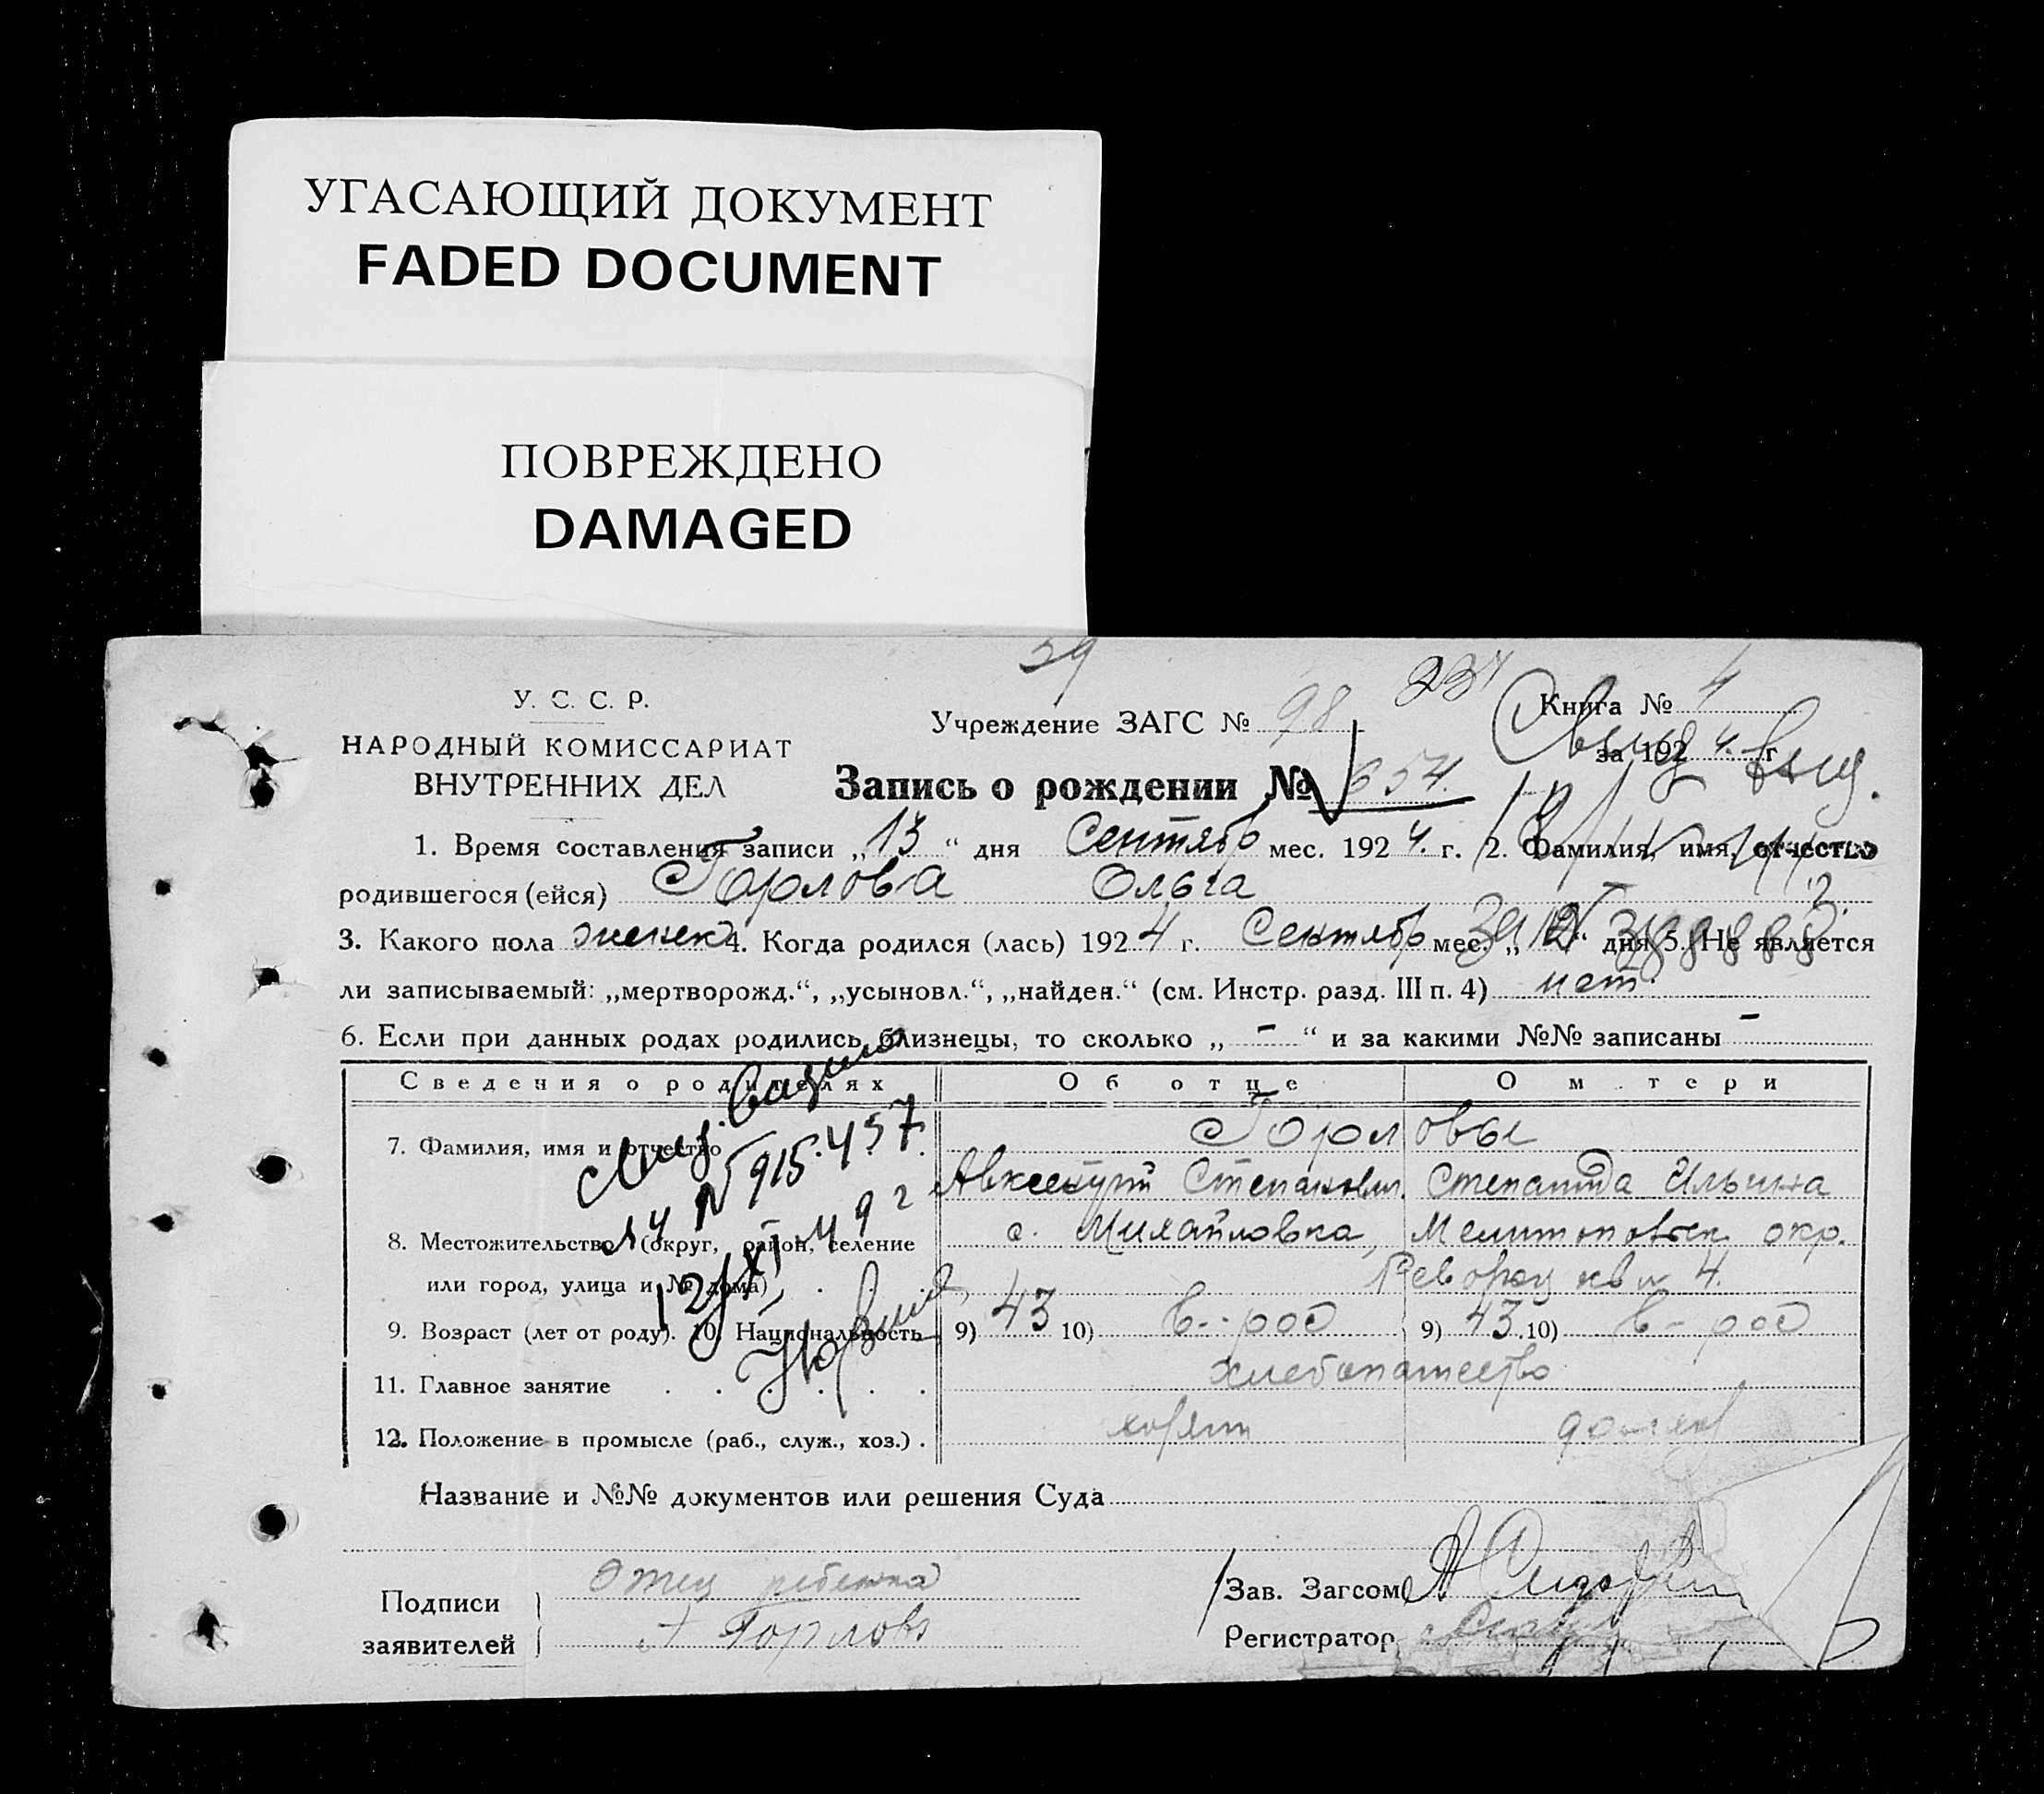 УГАСАЮЩИЙ ДОКУМЕНТ
FADED DOCUMENT
ПОВРЕЖДЕНО
DAMAGED
У. С. С. Р.
НАРОДНЫЙ КОМИССАРИАТ
ВНУТРЕННИХ ДЕЛ
Учреждение ЗАГС № 98
Книга № 4
за 1924 г
Запись о рождении № 654
1. Время составления записи „13“ дня Сентябр мес. 1924 г. 2. Фамилия, имя, отчество
родившегося (ейся) Горлова Ольга
3. Какого пола женск 4. Когда родился (лась) 1924 г. Сентябр мес. „12“ дня 5. Не является
ли записываемый: „мертворожд.“, „усыновл.“, „найден.“ (см. Инстр. разд. III п. 4) нет
6. Если при данных родах родились близнецы, то сколько „ - “ и за какими №№ записаны -
Сведения о родителях Об отце О м тери
7. Фамилия, имя и отчество Горловы
Степанида Ильина
8. Местожительство (округ, район, селение с. Михайловка, Мелитопольск окр.
или город, улица и № дома) 4
9. Возраст (лет от роду). 10. Национальность 9) 43 10) 9) 43 10)
11. Главное занятие хлебопашество
12. Положение в промысле (раб., служ., хоз.)
Название и №№ документов или решения Суда
Подписи
заявителей
Отец ребенка
А Горлов
Зав. Загсом
Регистратор